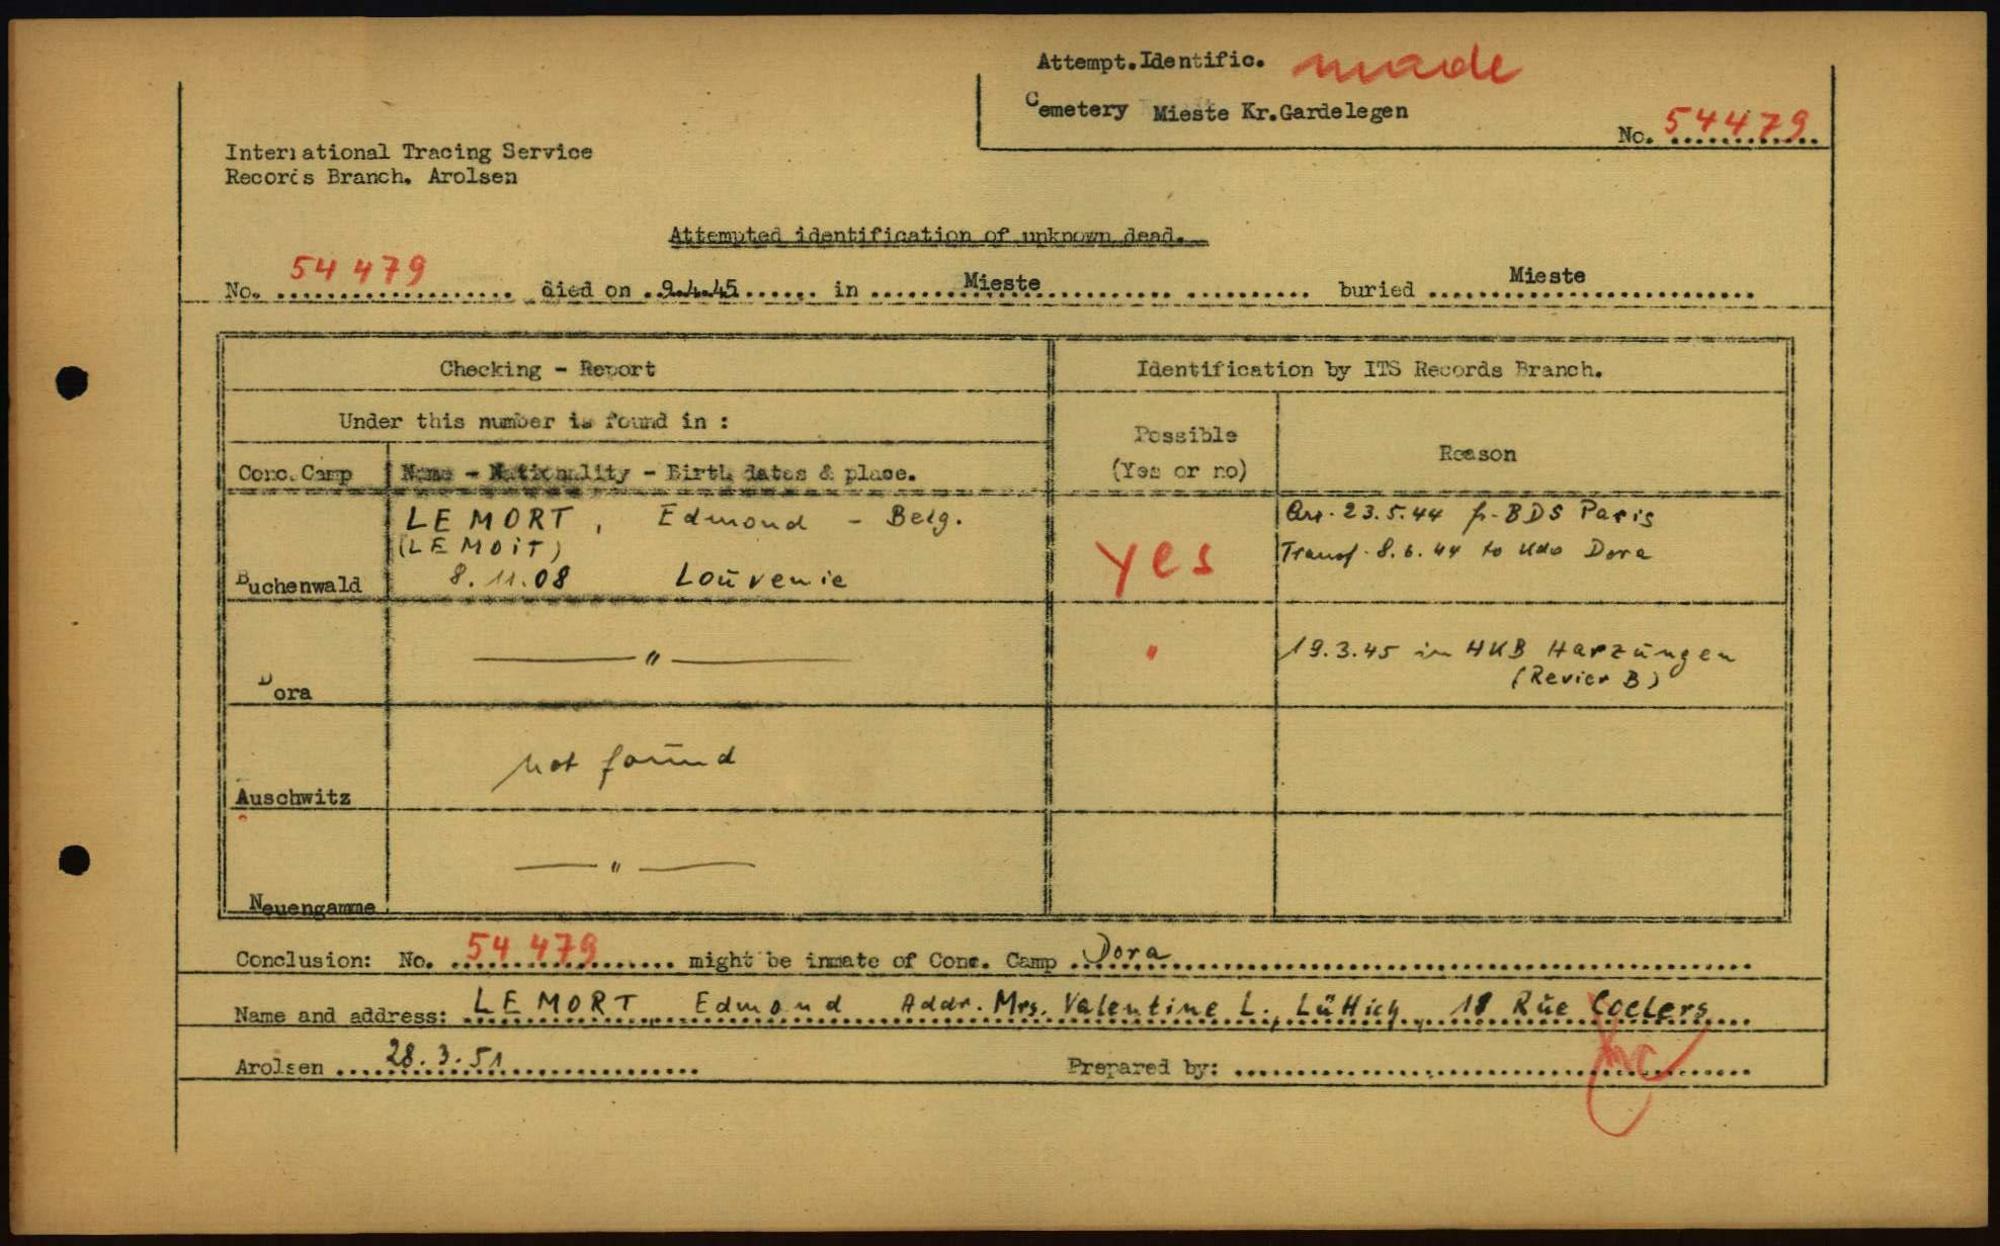 Attempt.Identific. made
Cemetery Mieste Kr.Gardelegen
No. 54479
International Tracing Service
Records Branch. Arolsen
Attempted identification of unknown dead.
No. 54479 died on 9.4.45 in Mieste buried Mieste
Checking - Report
Identification by ITS Records Branch.
Under this number is found in :
Possible
(Yes or no)
Reason
Conc.Camp
Name - Nationality - Birth dates & place.
LE MORT, Edmond - Belg.
(LE MOIT)
8.11.08 Loūvenie
Buchenwald
yes
Arr. 23.5.44 fr. BDS Paris
Transf. 8.6.44 to Kdo Dora
Dora
— " —
"
19.3.45 in HKB Harzūngen
(Revier B)
Auschwitz
not foūnd
Neuengamme
— " —
Conclusion: No. 54479 might be inmate of Conc. Camp Dora
Name and address: LE MORT, Edmond Addr. Mrs. Valentine L., Lüttich, 18 Rūe
Arolsen 28.3.51
Prepared by: